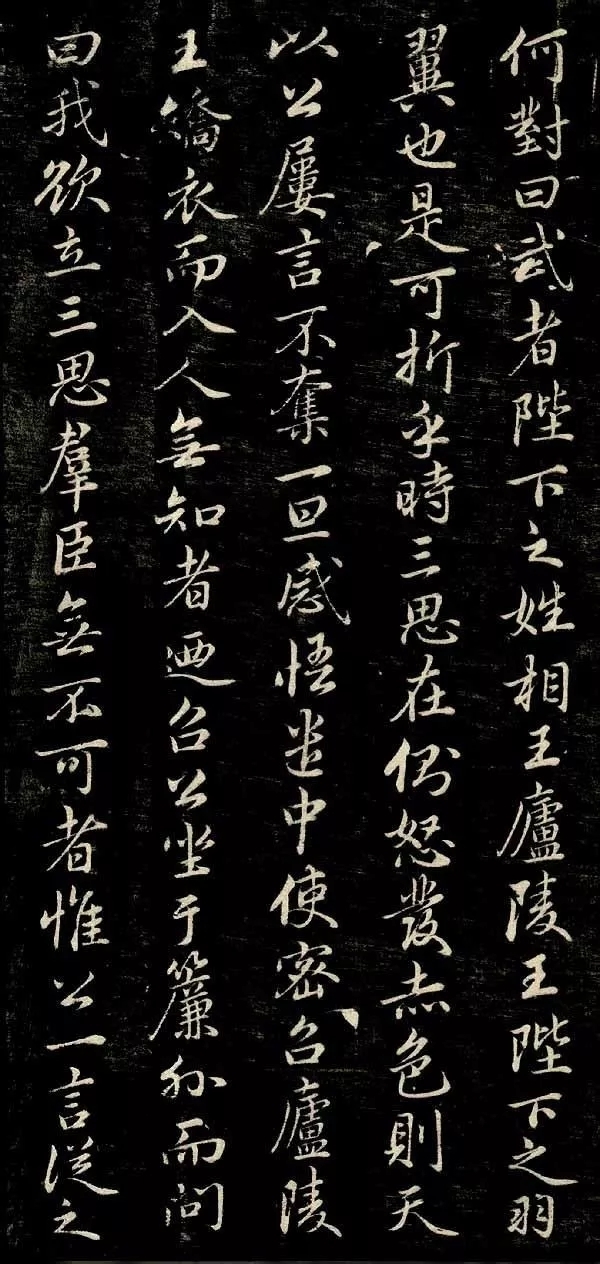 何對曰武者陛下之姓相王廬陵王陛下之羽
翼也是可折乎時三思在側怒發赤色則天
以公屢言不奪一旦感悟遣中使密召廬陵
王矯衣而入人無知者迺召公坐于簾外而問
曰我欲立三思羣臣無不可者惟公一言從之